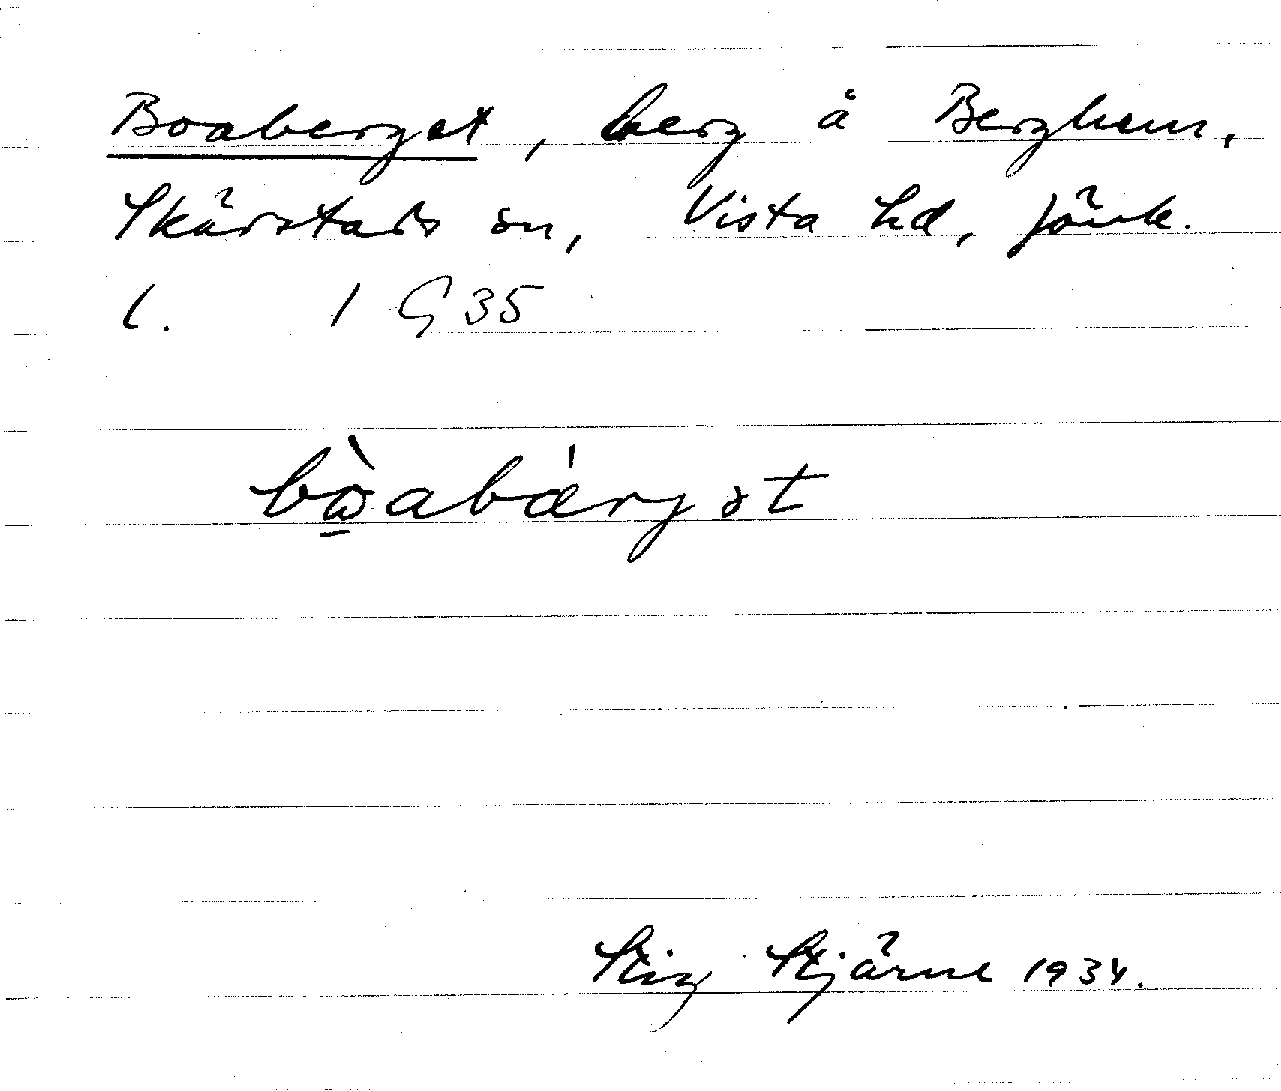 Boaberget, berg å Berghem,
Skärstads sn, Vista hd, Jönk.
l. 1 G 35
bὼ̱abä́rgət
Stig Stjärne 1934.